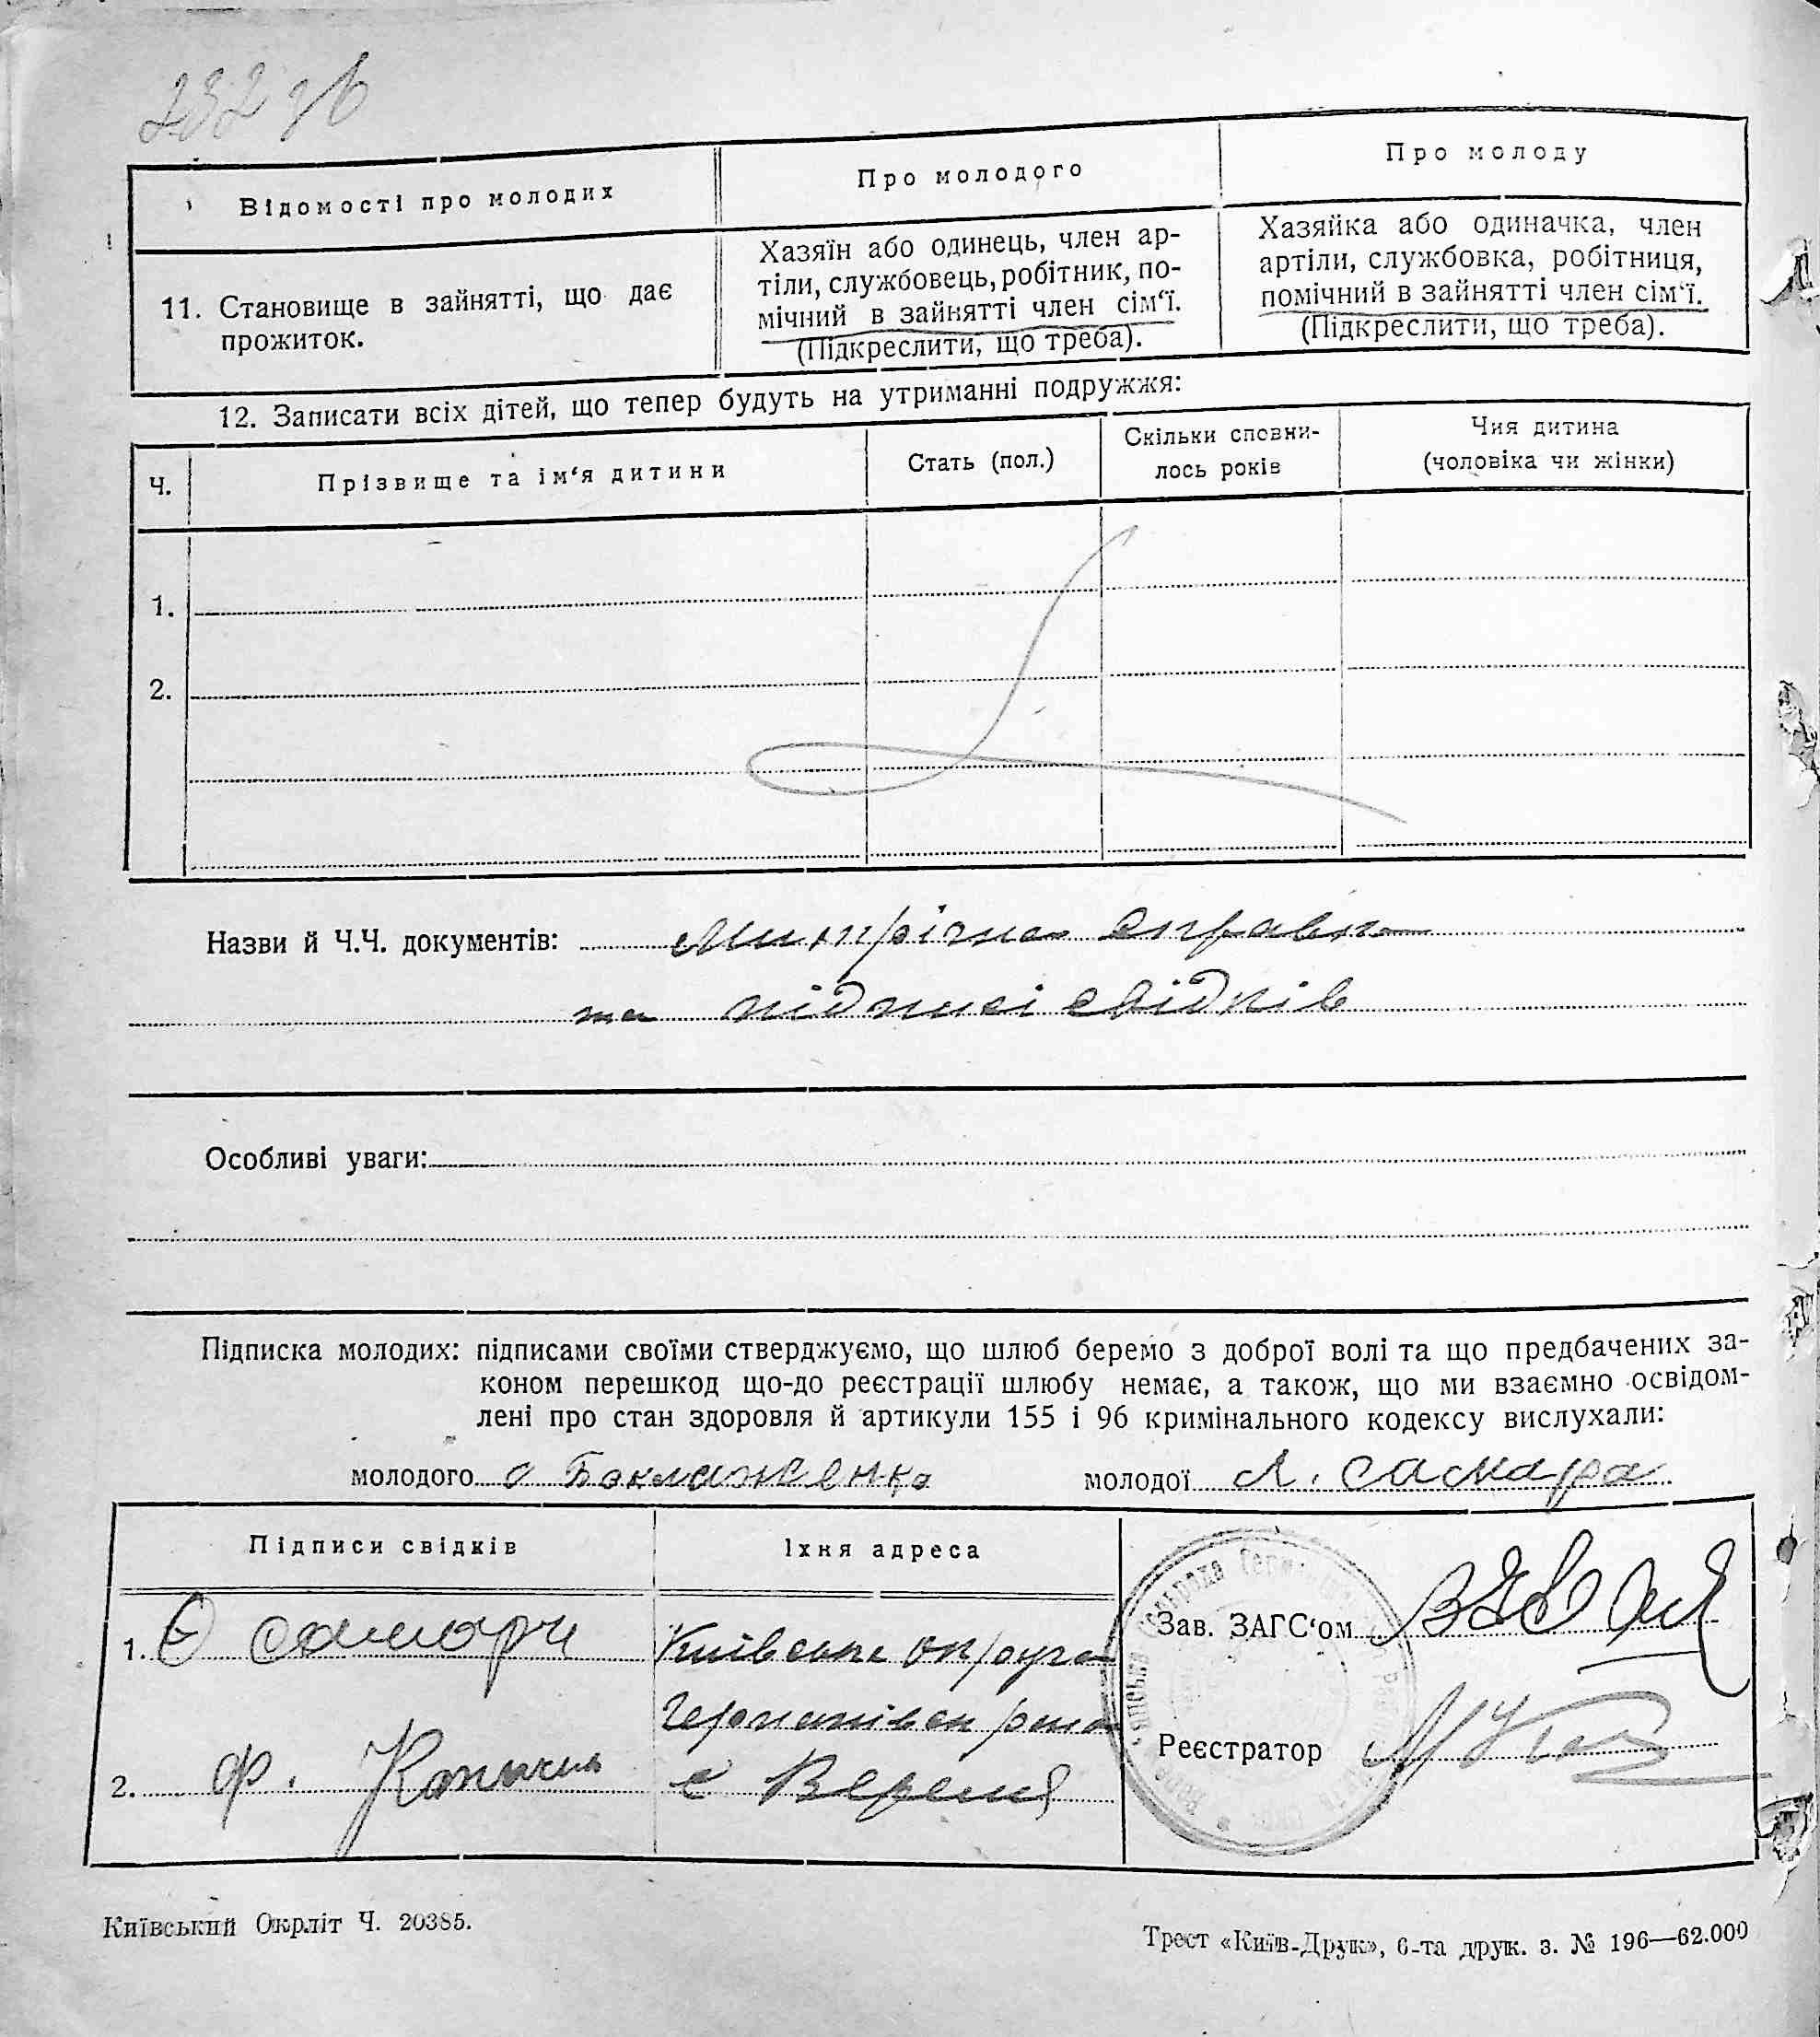 232 зв
Відомості про молодих
Про молодого
Про молоду
11. Становище в зайнятті, що дає
прожиток.
Хазяїн або одинець, член ар-
тіли, службовець, робітник, по-
мічний в зайнятті член сім‘ї.
(Підкреслити, що треба).
Хазяйка або одиначка, член
артіли, службовка, робітниця,
помічний в зайнятті член сім‘ї.
(Підкреслити, що треба).
12. Записати всіх дітей, що тепер будуть на утриманні подружжя:
Ч.
Прізвище та ім‘я дитини
Стать (пол.)
Скільки сповни-
лось років
Чия дитина
(чоловіка чи жінки)
1.
2.
Назви й Ч.Ч. документів: Митрічна справка
та підписі свідків
Особливі уваги:
Підписка молодих: підписами своїми стверджуємо, що шлюб беремо з доброї волі та що предбачених за-
коном перешкод що-до реєстрації шлюбу немає, а також, що ми взаємно освідом-
лені про стан здоровля й артикули 155 і 96 кримінального кодексу вислухали:
молодого Бакланженко молодої Л. Самара
Підписи свідків
Їхня адреса
1. Є Самари
Київська округа
Германівськ район
2. Ф.
с Веремя
Зав. ЗАГС‘ом
Реєстратор
Київський Окрліт Ч. 20385.
Трест «Київ-Друк», 6-та друк. з. № 196—62.000